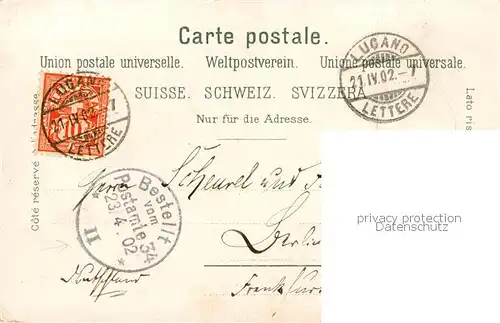 Carte postale.
Union postale universelle. Weltpostverein. Unione postale universale.
SUISSE. SCHWEIZ. SVIZZERA.
Nur für die Adresse.
Côté réservé
Lato ris
LUGANO
21.IV.02.-7
LETTERE
LUGANO
21.IV.02.-7
LETTERE
10
Bestellt
vom
Postamte 34
23.4.02
II
Herrn Scheurel und
Berlin
Frankfur
Deutschland
privacy protection
www.oldthing.de